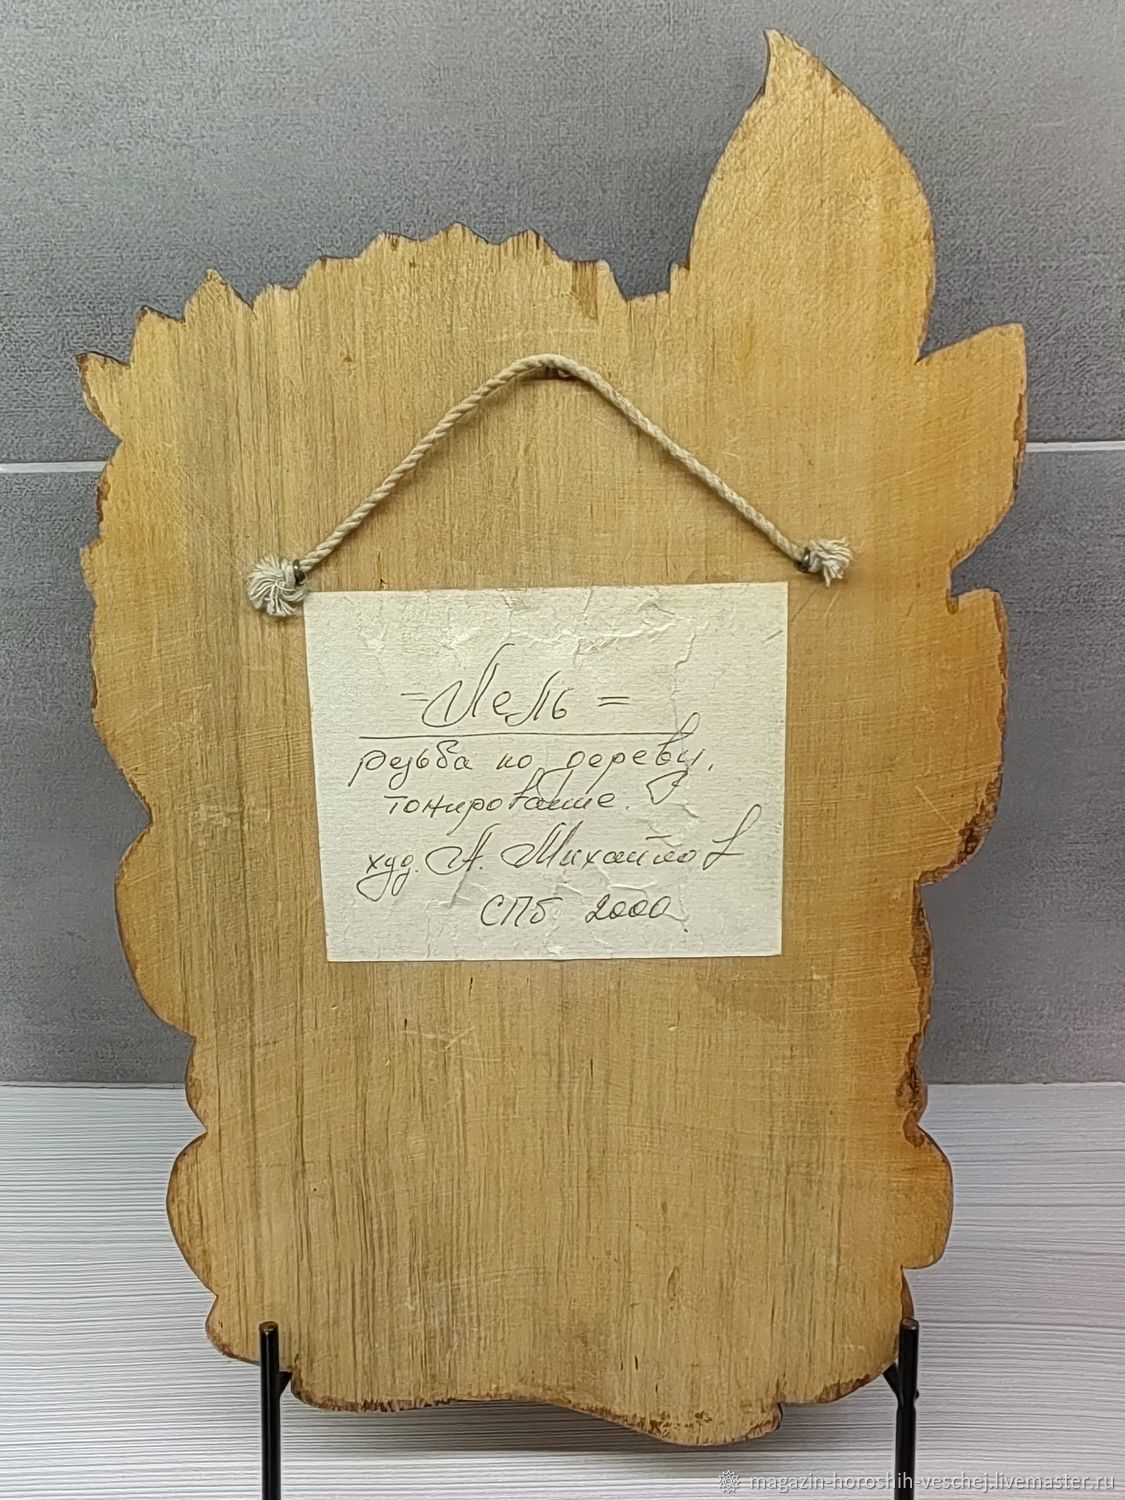 - Лель =
резьба по дереву,
тонирование.
худ. А. Михайлов
СПб 2000.
magazin-horoshih-veschej.livemaster.ru